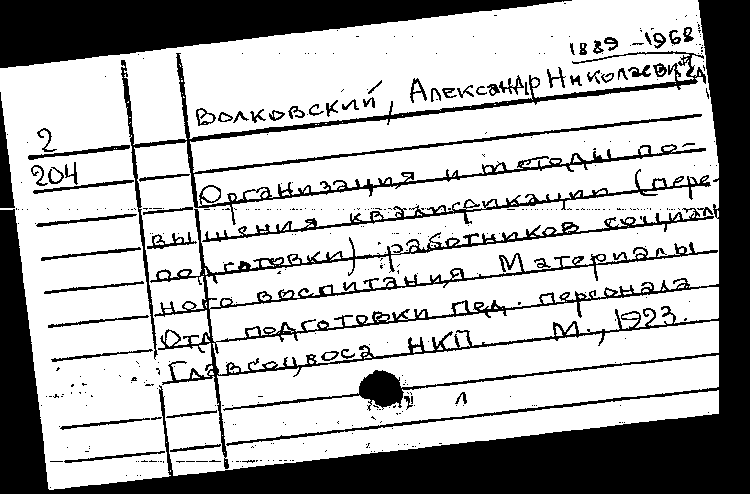 1889 - 1968
Волковский, Александр Николаевич, ред
2
204
Организация и методы по-
вышения квалификации (пере-
подготовки) работников социаль
ного воспитания. Материалы
Отд. подготовки пед. персонала
Главсоцвоса НКП. М., 1923.
1